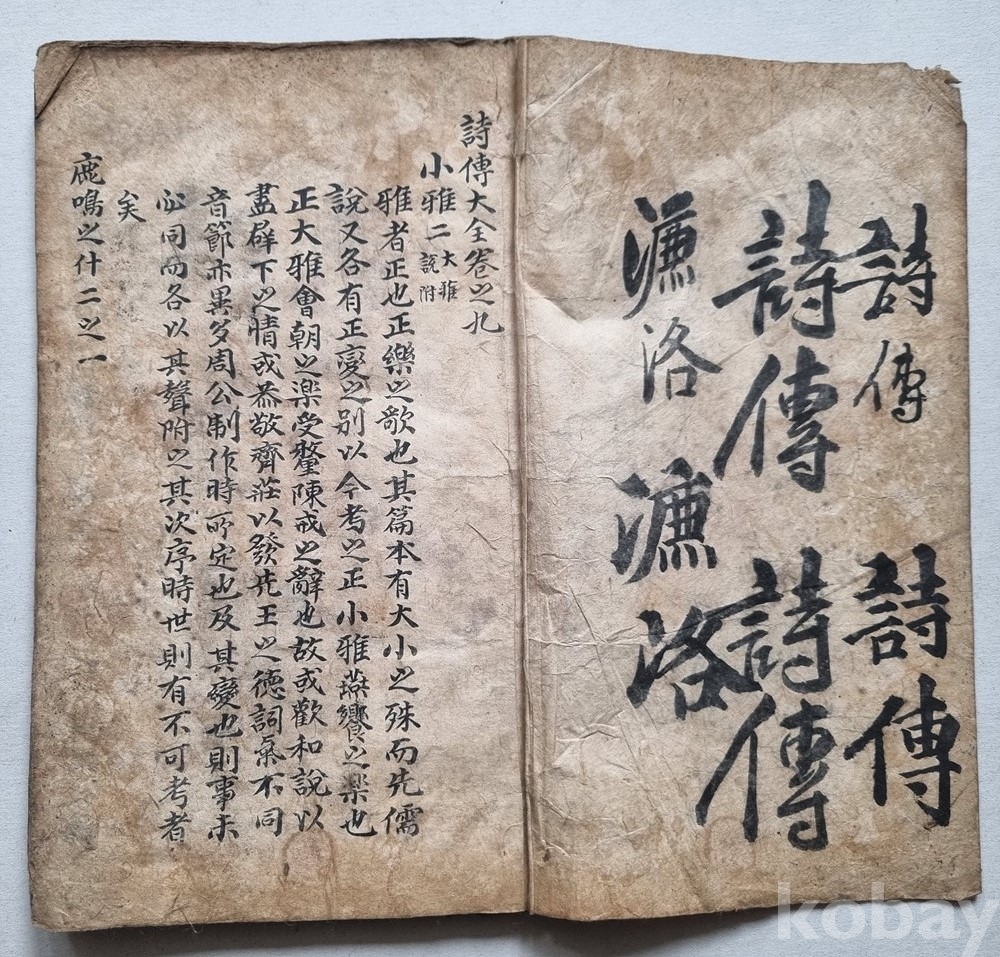 詩傳 詩傳
詩傳 詩傳
濂洛 濂洛
詩傳大全卷之九
小雅二 大雅說附
雅者正也正樂之歌也其篇本有大小之殊而先儒
說又各有正變之別以今考之正小雅燕饗之樂也
正大雅會朝之楽受釐陳戒之辭也故或歡和說以
盡群下之情或恭敬齊莊以發先王之德詞氣不同
音節亦異多周公制作時所定也及其變也則事未
必同而各以其聲附之其次序時世則有不可考者
矣
鹿鳴之什二之一
kobay